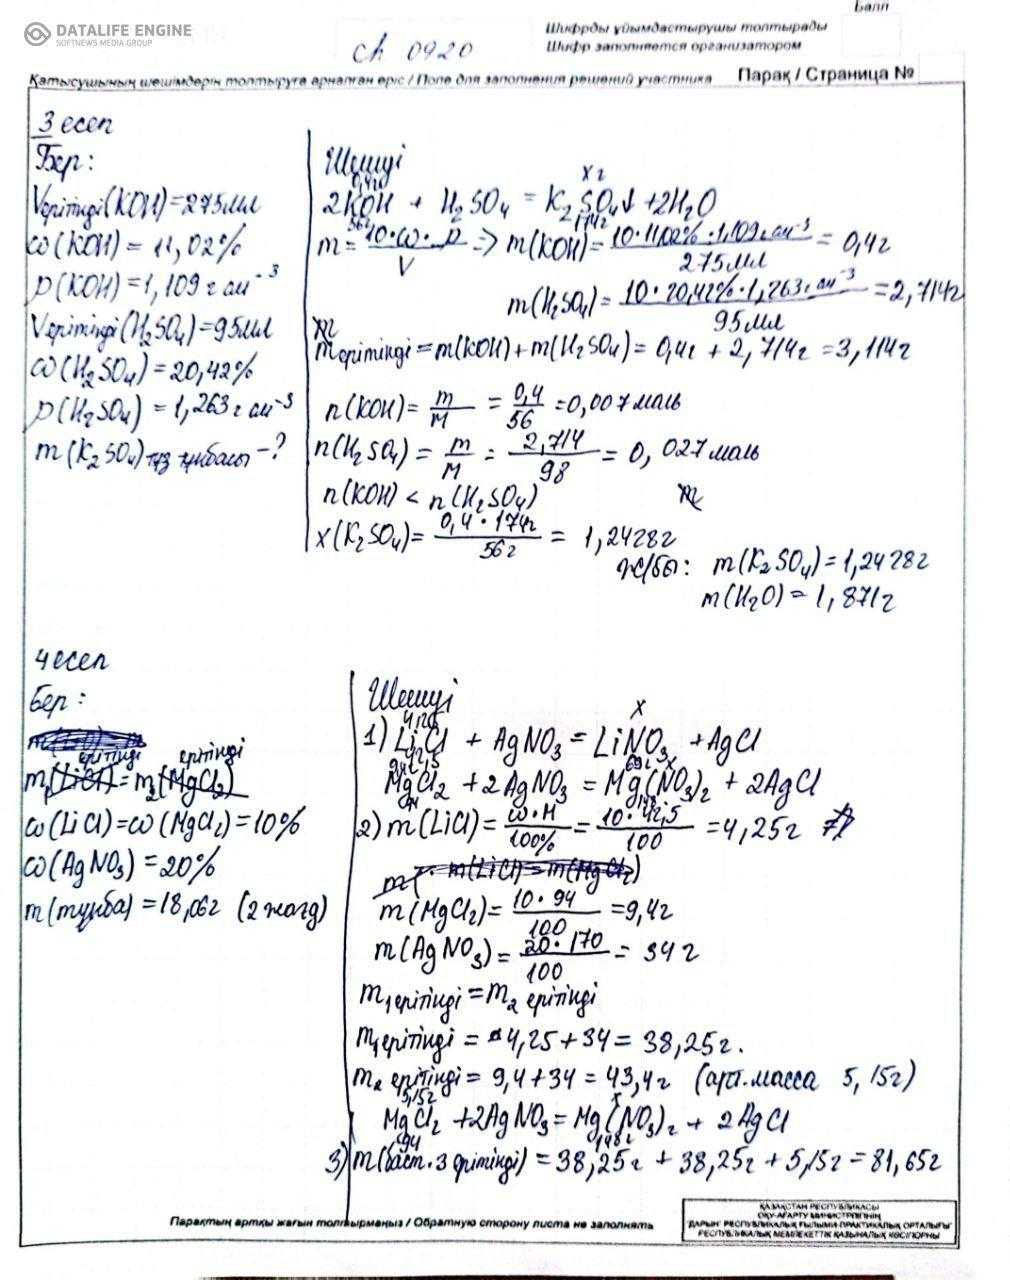 DATALIFE ENGINE
SOFTNEWS MEDIA GROUP
Балл
ch 0920
Шифрды ұйымдастырушы толтырады
Шифр заполняется организатором
Қатысушының шешімдерін толтыруға арналған өріс / Поле для заполнения решений участника
Парақ / Страница №
3 есеп
Бер:
Vерітінді(KOH)=275мл
ω(KOH)=11,02%
ρ(KOH)=1,109 г см⁻³
Vерітінді(H₂SO₄)=95мл
ω(H₂SO₄)=20,42%
ρ(H₂SO₄)=1,263 г см⁻³
m(K₂SO₄) тұз тұнбасы -?
Шешуі
0,4г x г
2KOH + H₂SO₄ = K₂SO₄↓ +2H₂O
56г 174г
m = 10·ω·ρ / V => m(KOH)= 10·11,02%·1,109г см⁻³ / 275мл = 0,4г
m(H₂SO₄)= 10·20,42%·1,263г см⁻³ / 95мл =2,714г
m
mерітінді=m(KOH)+m(H₂SO₄)= 0,4г + 2,714г =3,114г
n(KOH)= m/M = 0,4/56 =0,007моль
n(H₂SO₄)= m/M = 2,714/98 = 0,027моль
n(KOH) < n(H₂SO₄)
m
x(K₂SO₄)= 0,4·174г / 56г = 1,2428г
ж/бы: m(K₂SO₄)=1,2428г
m(H₂O)=1,871г
4 есеп
Бер:
ерітінді ерітінді
m₁(LiCl)=m₂(MgCl₂)
ω(LiCl)=ω(MgCl₂)=10%
ω(AgNO₃)=20%
m(тұнба)=18,06г (2 жағд)
Шешуі
x
1) LiCl + AgNO₃= LiNO₃ +AgCl
42,5 69г
9,4г x
MgCl₂ +2AgNO₃ = Mg(NO₃)₂ + 2AgCl
94 148
2) m(LiCl)= ω·M / 100% = 10·42,5 / 100 =4,25г
m(LiCl)=m(MgCl₂)
m(MgCl₂)= 10·94 / 100 =9,4г
m(AgNO₃)= 20·170 / 100 = 34г
m₁ерітінді=m₂ ерітінді
m₁ерітінді = 4,25+34= 38,25г.
m₂ ерітінді= 9,4+34= 43,4г (арт.масса 5,15г)
5,15г x
MgCl₂ +2AgNO₃= Mg(NO₃)₂+ 2AgCl
94 148г
3) m(баст.3 ерітінді) =38,25г + 38,25г + 5,15г = 81,65г
Парақтың артқы жағын толтырмаңыз / Обратную сторону листа не заполнять
ҚАЗАҚСТАН РЕСПУБЛИКАСЫ
ОҚУ-АҒАРТУ МИНИСТРЛІГІНІҢ
"ДАРЫН" РЕСПУБЛИКАЛЫҚ ҒЫЛЫМИ-ПРАКТИКАЛЫҚ ОРТАЛЫҒЫ
РЕСПУБЛИКАЛЫҚ МЕМЛЕКЕТТІК ҚАЗЫНАЛЫҚ КӘСІПОРНЫ